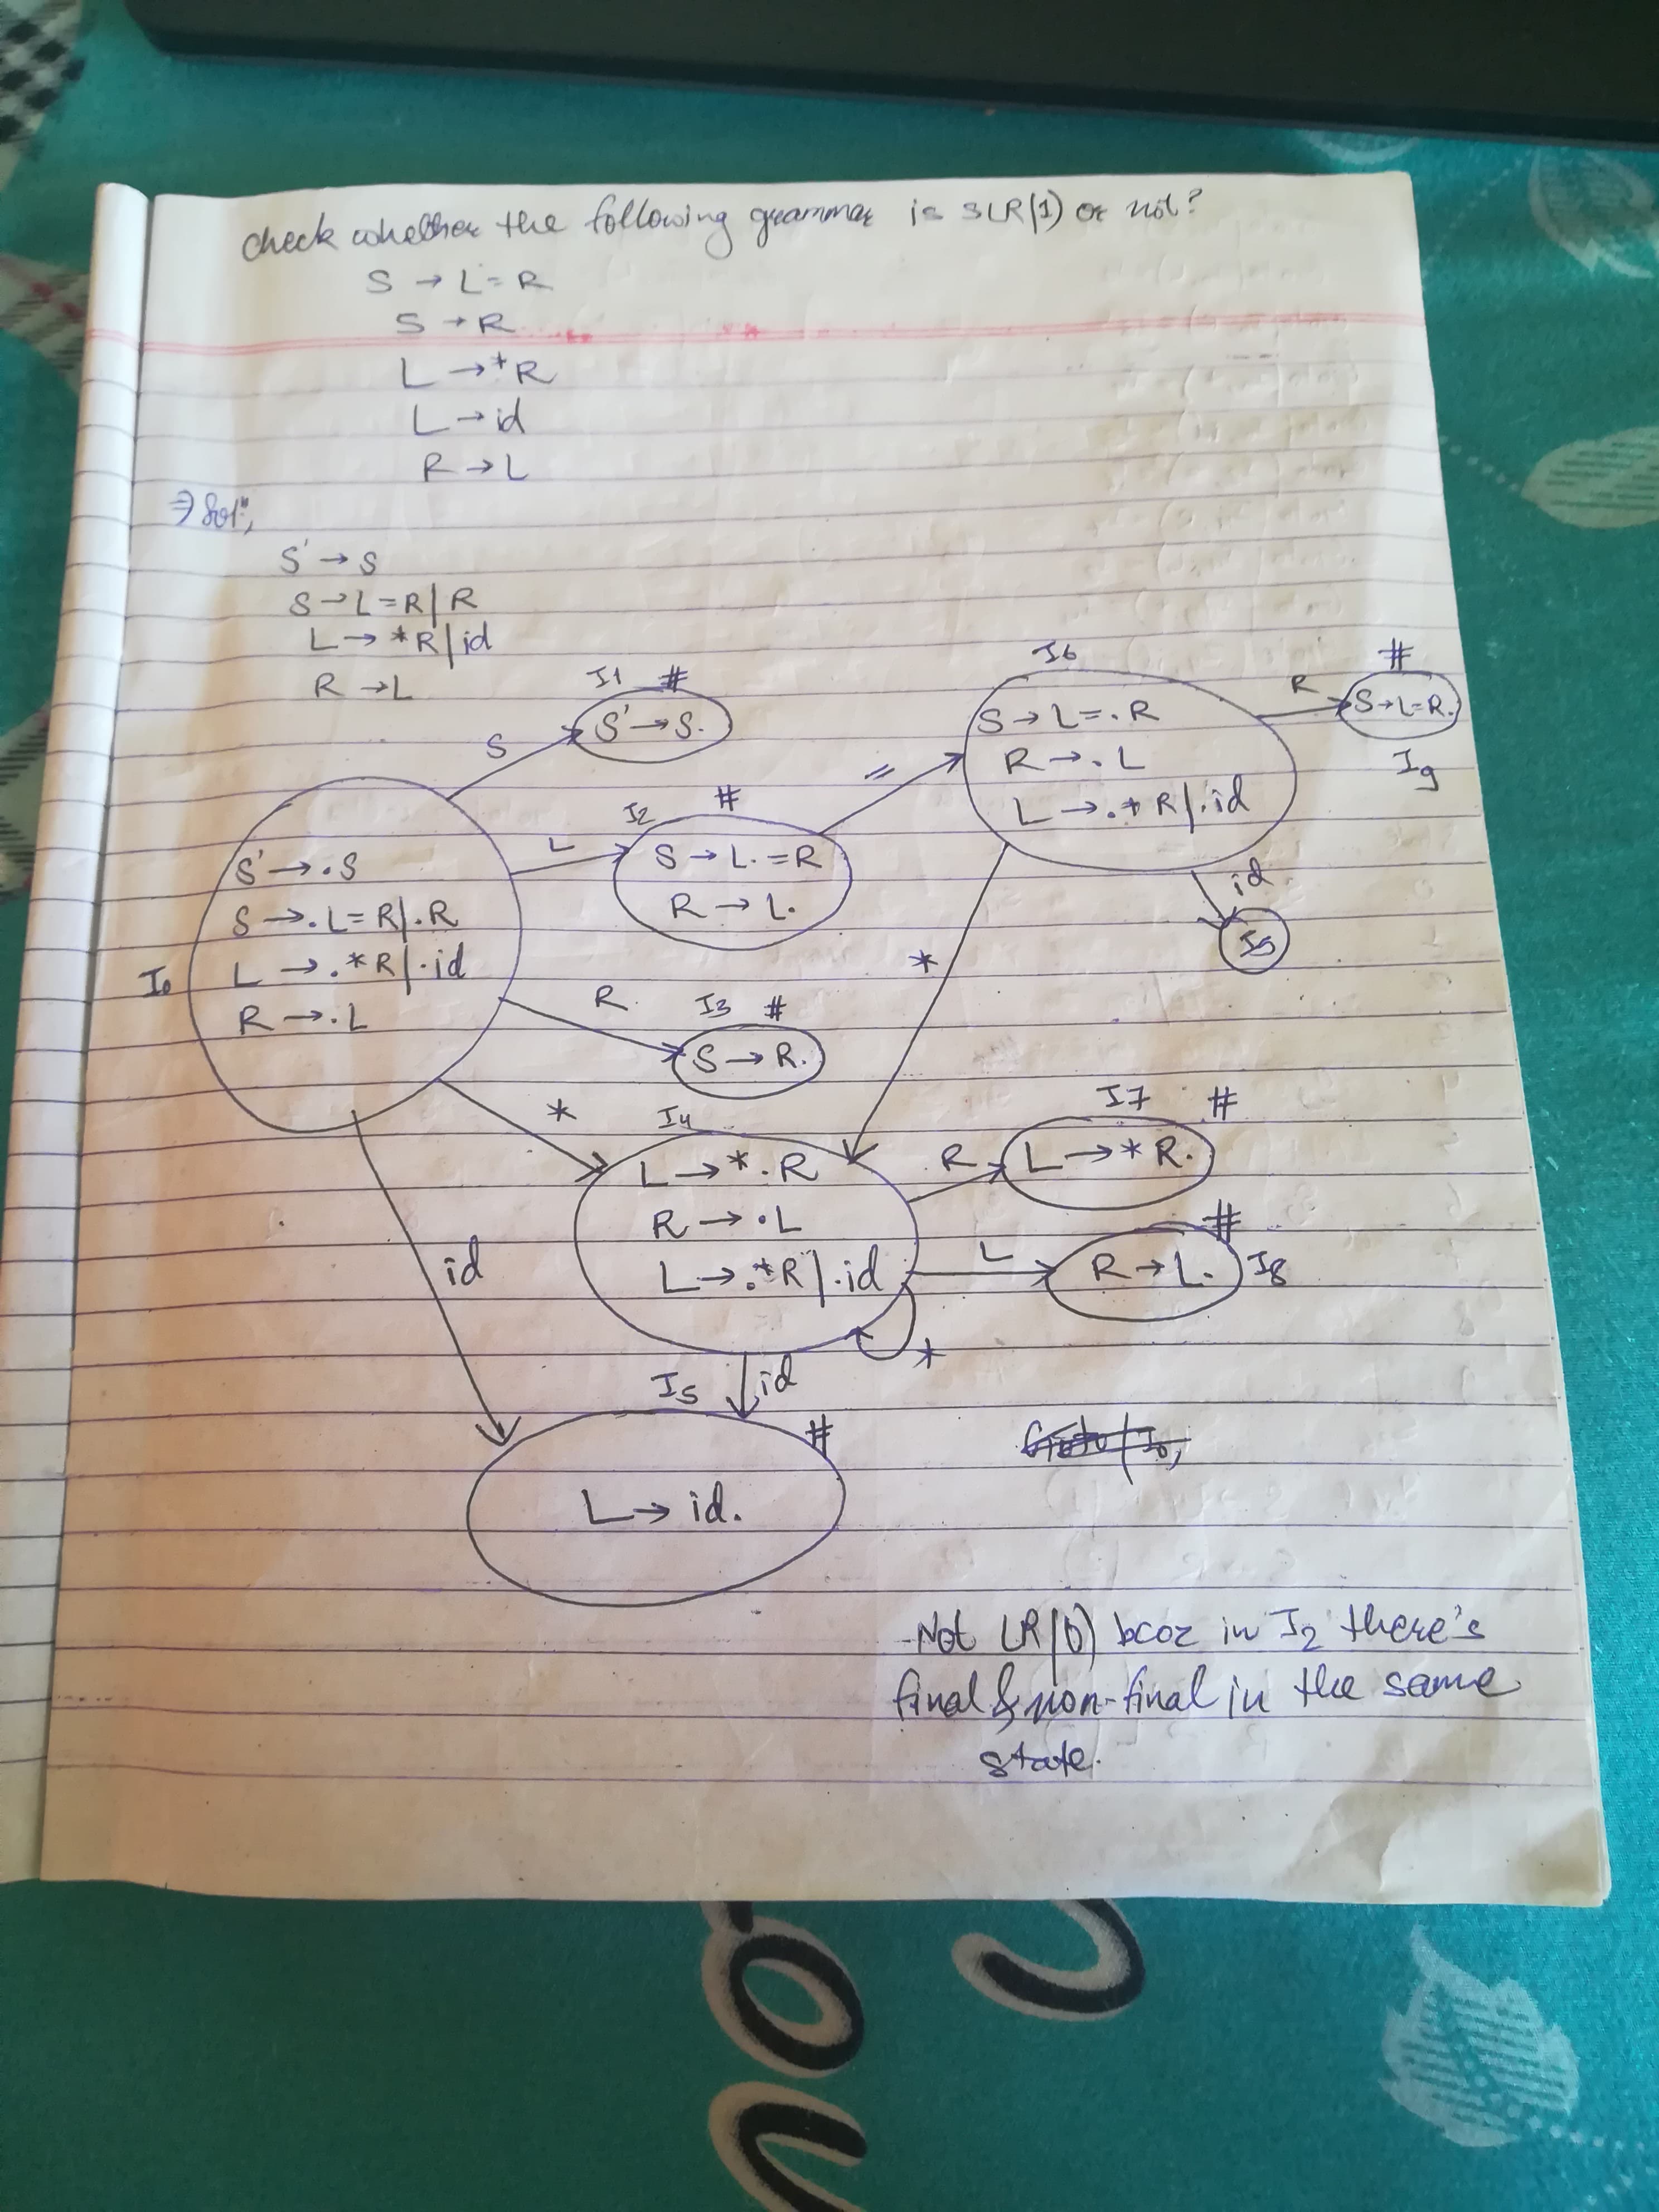 check whether the following grammar is SLR(1) or not?
S → L=R
S → R
L → *R
L → id
R → L
⇒ Solⁿ,
S' → S
S → L=R | R
L → *R | id
R → L
I1 #
S' → S.
S
I6
S → L=.R
R → .L
L → .*R | .id
R
#
S → L=R.
I9
=
I2 #
L
S → L.=R
R → L.
I0
S' → .S
S → .L=R | .R
L → .*R | .id
R → .L
id
I5
*
R
I3 #
S → R.
*
I4
L → *.R
R → .L
L → .*R | .id
R
I7 #
L → *R.
L
#
R → L. I8
*
id
I5 id
#
L → id.
Not LR(0) bcoz in I2 there's
final & non-final in the same
state.